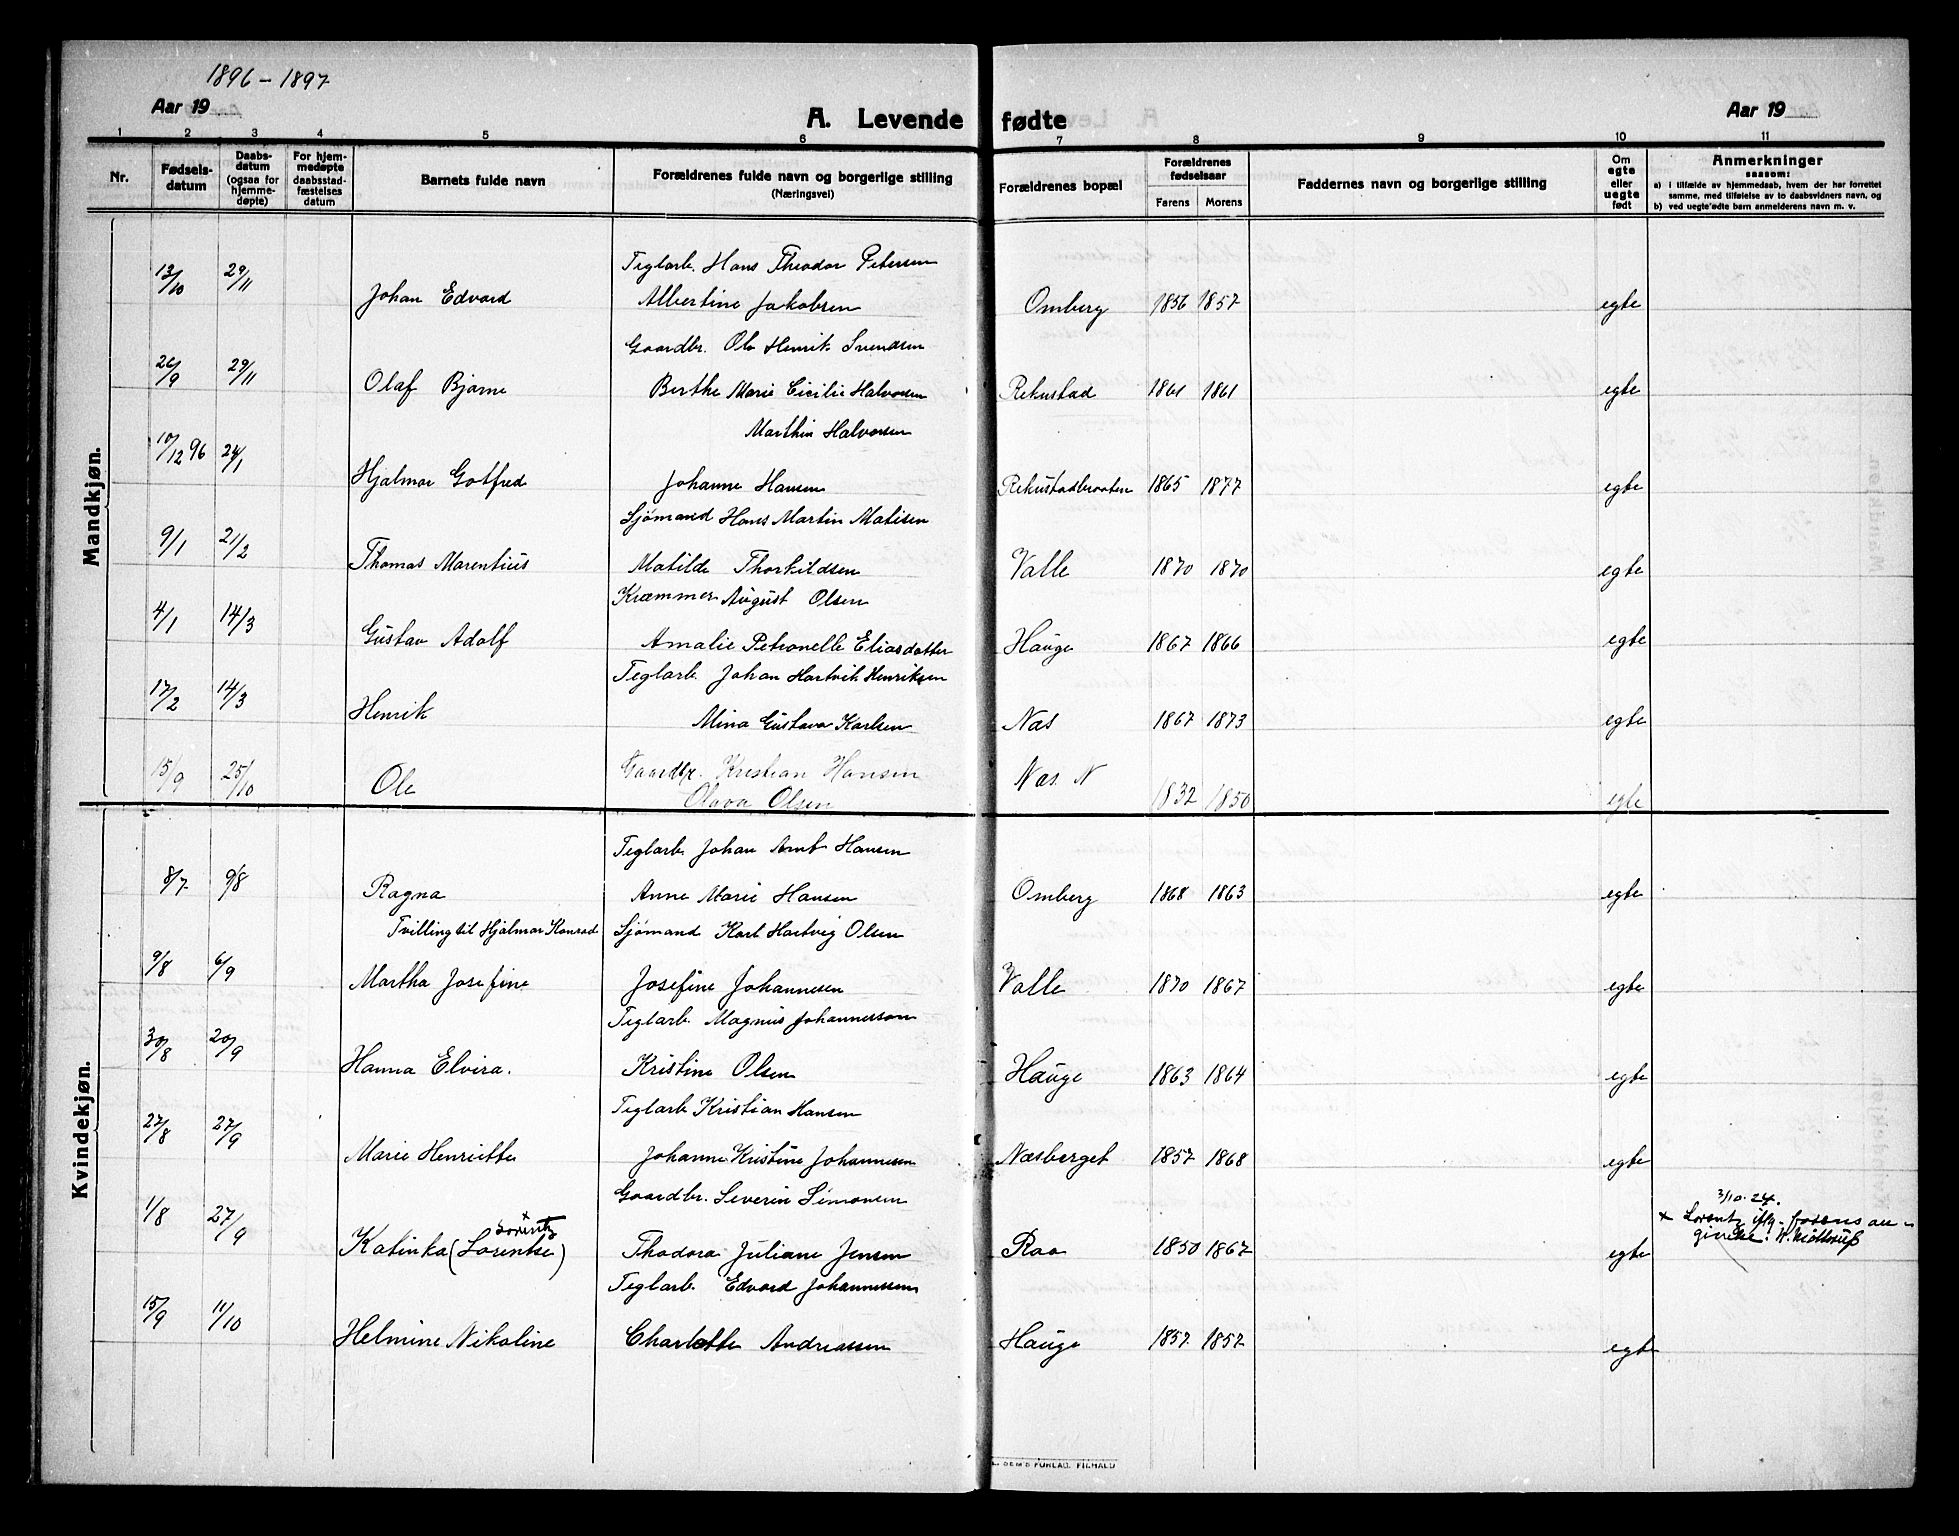 1896 – 1897
Aar 19
A. Levende fødte
Aar 19
1 2 3 4 5 6 7 8 9 10 11
Nr.
Fødsels-
datum
Daabs-
datum
(ogsaa for
hjemme-
døpte)
For hjem-
madøpte
daabsstad-
fæstelses
datum
Barnets fulde navn
Forældrenes fulde navn og borgerlige stilling
(Næringsvei)
Forældrenes bopæl
Forældrenes
fødselsaar
Farens Morens
Faddernes navn og borgerlige stilling
Om
egte
eller
uegte
født
Anmerkninger
saasom:
a) i tilfælde av hjemmedaab, hvem der har forrettet
samme, med tilføielse av to daabsvidners navn, og
b) ved uegte fødte barn anmelderens navn m. v.
Mandkjøn.
Teglarb. Hans Theodor Petersen
13/10 29/11 Johan Edvard Albertine Jakobsen Omberg 1856 1857 egte
Gaardbr. Ole Henrik Svendsen
26/9 29/11 Olaf Bjarne Berthe Marie Cicilie Halvorsen Rekustad 1861 1861 egte
Marthin Halvorsen
10/12 96 24/1 Hjalmar Gotfred Johanne Hansen Rekustadbraaten 1865 1877 egte
Sjømand Hans Martin Matisen
9/1 21/2 Thomas Marentius Matilde Thorkildsen Valle 1870 1870 egte
Kræmmer August Olsen
4/1 14/3 Gustav Adolf Amalie Petronelle Eliasdatter Hauge 1867 1866 egte
Teglarb. Johan Hartvik Henriksen
17/2 14/3 Henrik Mina Gustava Karlsen Næs 1867 1873 egte
Gaardbr. Kristian Hansen
15/9 25/10 Ole Olava Olsen Næs. N 1832 1850 egte
Kvindekjøn.
Teglarb. Johan Arnt Hansen
8/7 9/8 Ragna Anne Marie Hansen Omberg 1868 1863 egte
Tvilling til Hjalmar Konrad Sjømand Karl Hartvig Olsen
9/8 6/9 Martha Josefine Josefine Johannesen Valle 1870 1867 egte
Teglarb. Magnus Johannesson
30/8 20/9 Hanna Elvira. Kristine Olsen Hauge 1863 1864 egte
Teglarb. Kristian Hansen
27/8 27/9 Marie Henriette Johanne Kristine Johannesen Næsberget 1857 1868 egte
Gaardbr. Severin Simonsen
x Lorentz 3/10. 24.
1/8 27/9 Katinka (Lorentse) Thodora Juliane Jensen Raa 1850 1867 egte x Lorentz iflg. farens an-
givelse.
Teglarb. Edvard Johannessen
15/9 11/10 Helmine Nikoline Charlotte Andreassen Hauge 1857 1857 egte
SEM'S FORLAG. F.HALD